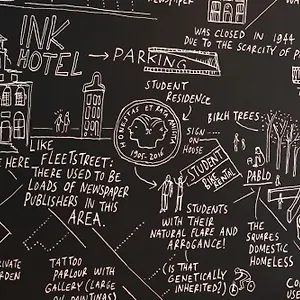 NEWSPAPER
WAS CLOSED IN 1944
DUE TO THE SCARCITY OF P
INK
HOTEL
PARKING
STUDENT
RESIDENCE
HONESTAS ET RARA AMICITIA
1905-2016
SIGN
ON
HOUSE
BIRCH TREES
STUDENT
BIKE
RENTAL
PABLO
E HERE
LIKE
FLEETSTREET:
THERE USED TO BE
LOADS OF NEWSPAPER
PUBLISHERS IN THIS
AREA
STUDENTS
WITH THEIR
NATURAL FLARE AND
ARROGANCE!
(IS THAT
GENETICALLY
INHERITED?)
THE
SQUARES
DOMESTIC
HOMELESS
RIVATE
RDEN
TATTOO
PARLOUR WITH
GALLERY (LARGE
OIL PAINTINGS)